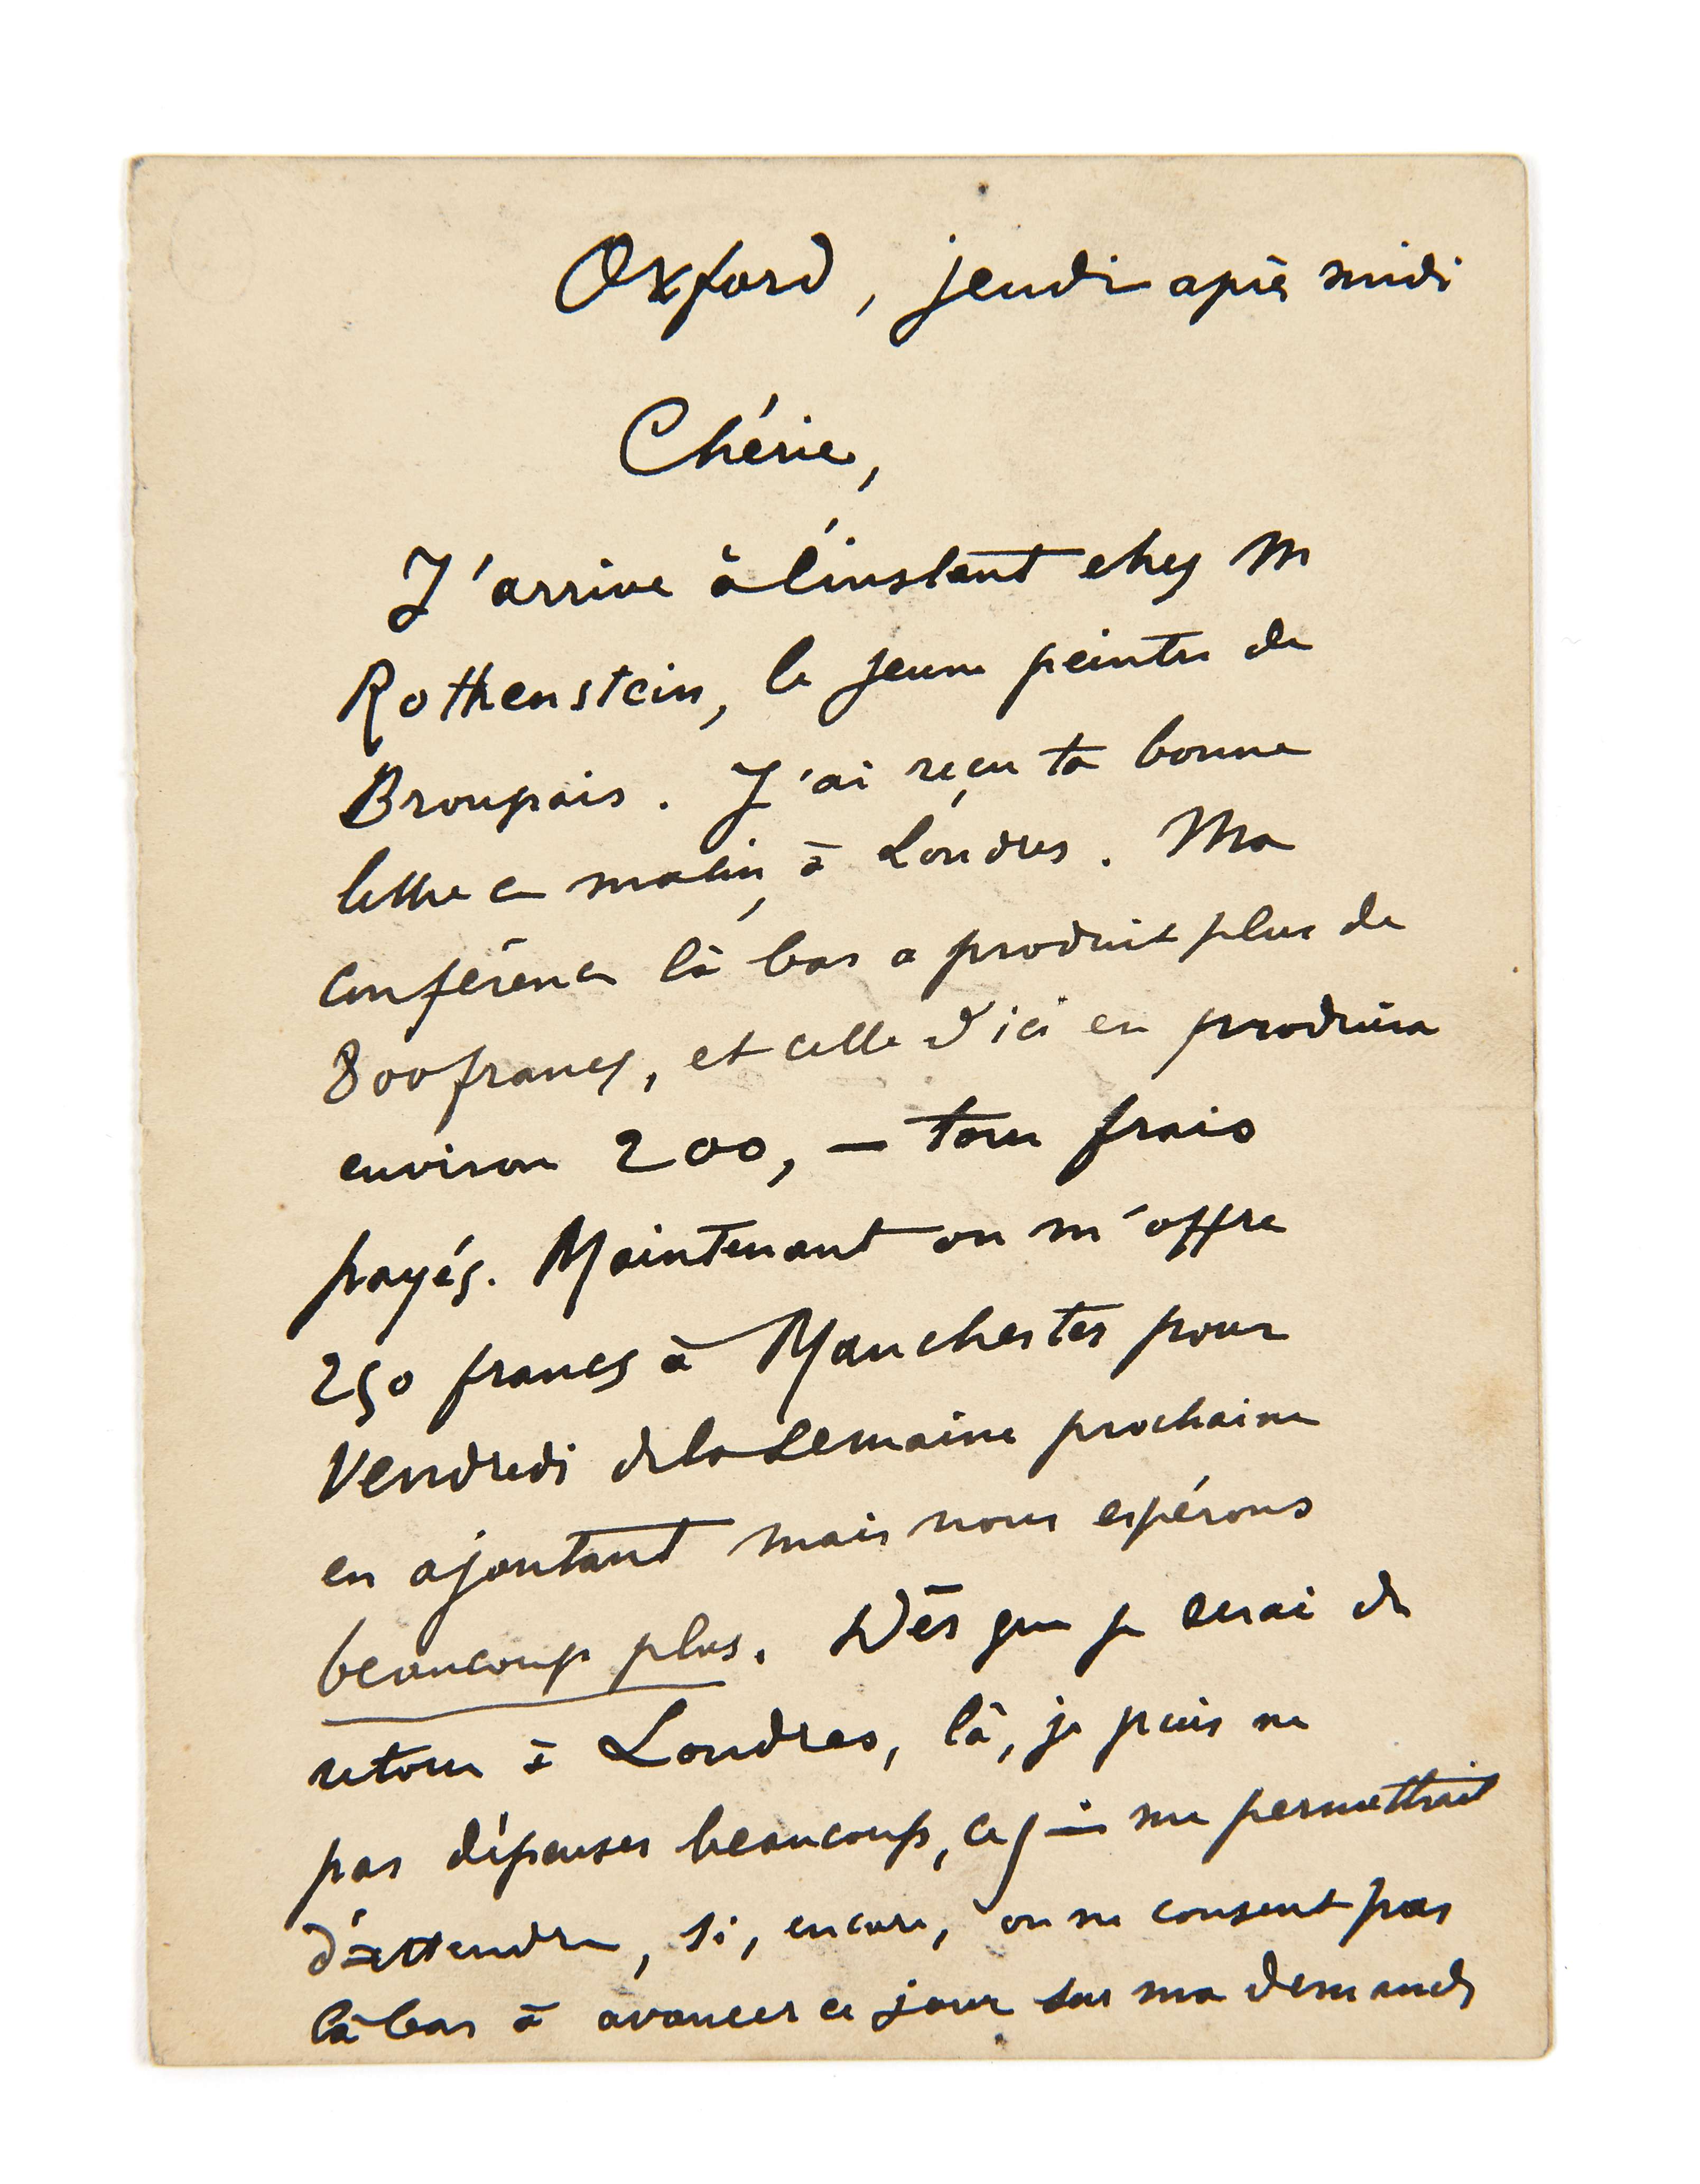 Oxford, jeudi après midi
Chérie,
J'arrive à l'instant chez M
Rothenstein, le jeune peintre de
Broupais. J'ai reçu ta bonne
lettre ce matin, à Londres. Ma
conférence là bas a produit plus de
800 francs, et celle d'ici en produira
environ 200, — tous frais
payés. Maintenant on m'offre
250 francs à Manchester pour
Vendredi de la semaine prochaine
en ajoutant mais nous espérons
beaucoup plus. Dès que je serai de
retour à Londres, là, je puis ne
pas dépenser beaucoup, ce qui me permettrait
d'attendre, si, encore, on ne consent pas
là bas à avancer ce jour sur ma demande